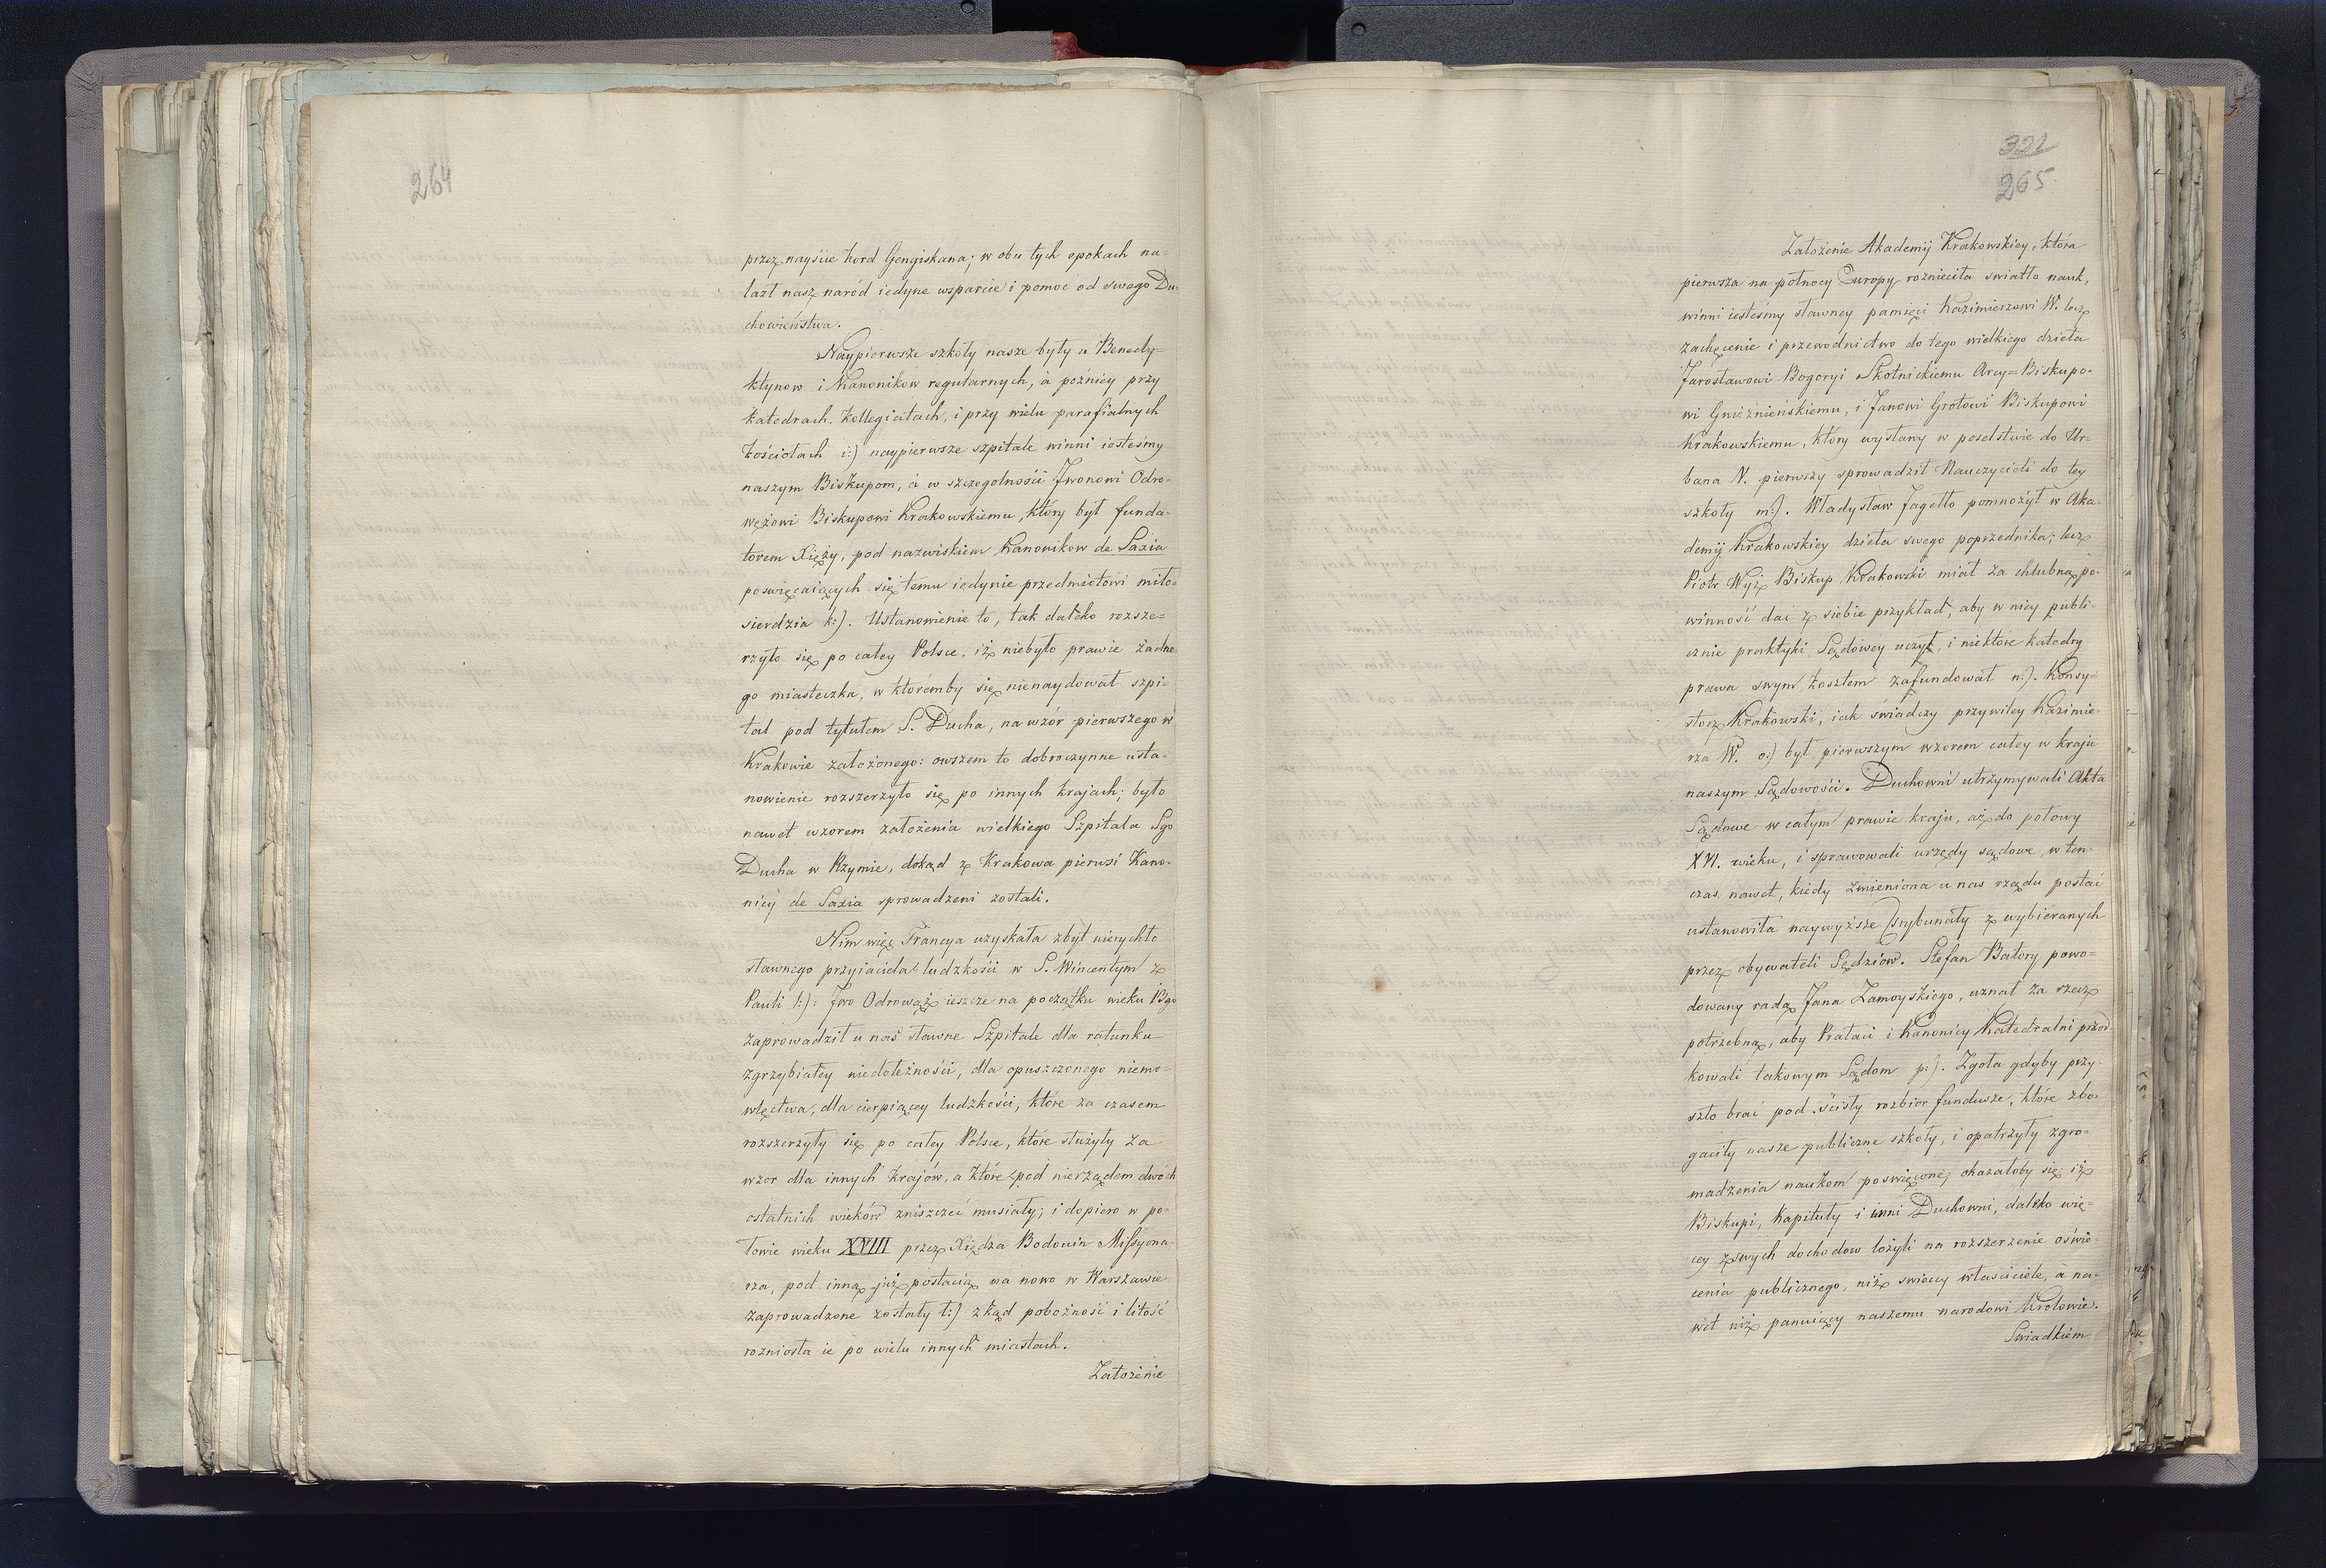 264
przez nayście hord Gengiskana; w obu tych epokach na=
lazł nasz naród iedyne wsparcie i pomoc od swego Du=
chowieństwa.
Naypierwsze szkoły nasze były u Benedy=
ktynow i Kanonikow regularnych, a poźniey przy
katedrach, kollegiatach, i przy wielu parafialnych
kościołach i:) naypierwsze szpitale winni iesteśmy
naszym Biskupom, a w szczegolności Jwonowi Odro=
wężowi Biskupowi Krakowskiemu, który był funda=
torem Xięży, pod nazwiskiem Kanonikow de Saxia
poswięcaiących się temu iedynie przedmiotowi miło=
sierdzia k:). Ustanowienie to, tak daleko rozsze=
rzyło się po całey Polsce, iż niebyło prawie żadne=
go miasteczka, w którémby się nienaydował szpi=
tal pod tytułem S. Ducha, na wzór pierwszego w
Krakowie założonego: owszem to dobroczynne usta=
nowienie rozszerzyło się po innych krajach; było
nawet wzorem założenia wielkiego Szpitala Sgo
Ducha w Rzymie, dokąd z Krakowa pierwsi Kano=
nicy de Saxia sprowadzeni zostali.
Nim więc Francya uzyskała zbyt nierychło
sławnego przyiaciela ludzkości w S. Wincentym z
Pauli l:): Jwo Odrowąż ieszcze na początku wieku 13go
zaprowadził u nas sławne Szpitale dla ratunku
zgrzybiałey niedołężności, dla opuszczonego niemo=
wlęctwa, dla cierpiącey ludzkości, które za czasem
rozszerzyły się po całey Polsce, które służyły za
wzor dla innych krajów, a które pod nierządem dwóch
ostatnich wieków zniszczeć musiały; i dopiero w po=
łowie wieku XVIII przez Xiędza Bodouin Missyona=
rza, pod inną już postacią na nowo w Warszawie
zaprowadzone zostały ł:) zkąd pobożność i litość
rozniosła ie po wielu innych miastach.
Założenie
321
265
Założenie Akademij Krakowskiey, która
pierwsza na połnocy Europy rozniecíła swiatło nauk,
winni iestesmy sławney pamięci Kazimierzowi W. lecz
zachęcenie i przewodnictwo do tego wielkiego dzieła
Jarosławowi Bogoryi Skotnickiemu Arcy=Biskupo=
wi Gnieźnieńskiemu, i Janowi Grotowi Biskupowi
Krakowskiemu, który wysłany w poselstwie do Ur=
bana V. pierwszy sprowadził Nauczycieli do tey
szkoły m:). Władysław Jagełło pomnożył w Aka=
demij Krakowskiey dzieła swego poprzednika; lecz
Piotr Wyż Biskup Krakowski miał za chlubną po=
winność dać z siebie przykład, aby w niey publi=
cznie praktyki Sądowey uczył, i niektóre katedry
prawa swym kosztem zafundował n:). Konsy=
storz Krakowski, iak świadczy przywiley Kazimie=
rza W. o:) był pierwszym wzorem całey w kraju
naszym Sądowości. Duchowni utrzymywali Akta
Sądowe w całym prawie kraju, aż do połowy
XVI. wieku, i sprawowali urzędy sądowe, w ten=
czas nawet, kiedy zmieniona u nas rządu postać
ustanowiła naywyższe Trybunały z wybieranych
przez obywateli Sędziow. Stefan Batory powo=
dowany radą Jana Zamoyskiego, uznał za rzecz
potrzebną, aby Prałaci i Kanonicy Katedralni przod=
kowali takowym Sądom p:). Zgoła gdyby przy=
szło brać pod ścisły rozbior fundusze, które zbo=
gaciły nasze publiczne szkoły, i opatrzyły zgro=
madzenia naukom poswięcone, okazałoby się, iż
Biskupi, Kapituły i inni Duchowni, daleko wię=
cey z swych dochodow łożyli na rozszerzenie oświe=
cenia publicznego, niż swieccy własciciele, a na=
wet niż panuiący naszemu narodowi Krolowie.
Swiadkiem